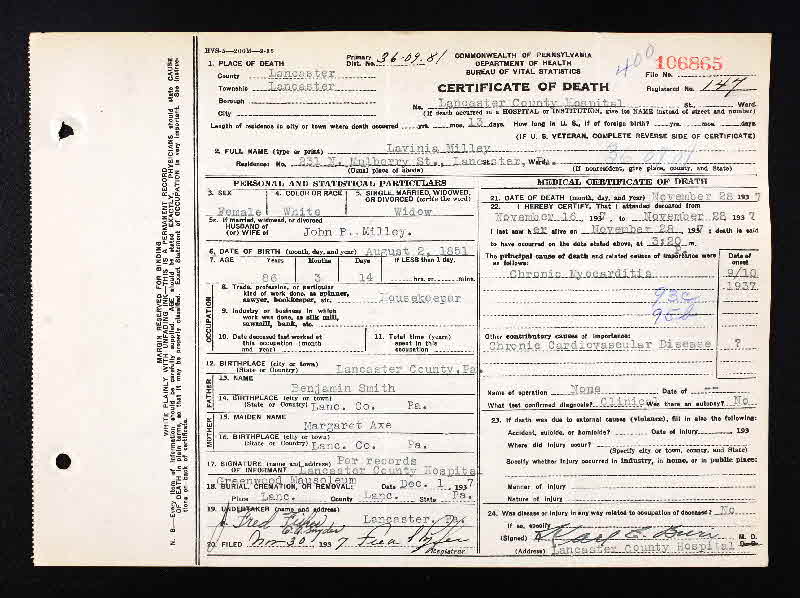 HVS-5—200M-2-36
1. PLACE OF DEATH
County Lancaster
Township Lancaster
Borough
City
Primary Dist. No. 36-09-81
COMMONWEALTH OF PENNSYLVANIA
DEPARTMENT OF HEALTH
BUREAU OF VITAL STATISTICS
CERTIFICATE OF DEATH
400
File No. 106865
Registered No. 147
No. Lancaster County Hospital St., Ward.
(If death occurred in a HOSPITAL or INSTITUTION, give the NAME instead of street and number)
Length of residence in city or town where death occurred yrs. mos. 13 days. How long in U. S., if of foreign birth? yrs. mos. days
(IF U. S. VETERAN, COMPLETE REVERSE SIDE OF CERTIFICATE)
2. FULL NAME (type or print) Lavinia Milley
Residence: No. 231 N. Mulberry St., Lancaster, Ward,
(Usual place of abode) (If nonresident, give place, county, and State)
PERSONAL AND STATISTICAL PARTICULARS
3. SEX Female
4. COLOR OR RACE White
5. SINGLE, MARRIED, WIDOWED, OR DIVORCED (write the word) Widow
5a. If married, widowed, or divorced
HUSBAND of
(or) WIFE of John P. Milley.
6. DATE OF BIRTH (month, day, and year) August 2, 1851
7. AGE Years 86 Months 3 Days 14 If LESS than 1 day. hrs. or mins.
OCCUPATION
8. Trade, profession, or particular kind of work done, as spinner, sawyer, bookkeeper, etc. Housekeeper
9. Industry or business in which work was done, as silk mill, sawmill, bank, etc.
10. Date deceased last worked at this occupation (month and year)
11. Total time (years) spent in this occupation
12. BIRTHPLACE (city or town) (State or Country) Lancaster County, Pa.
FATHER
13. NAME Benjamin Smith
14. BIRTHPLACE (city or town) (State or Country) Lanc. Co. Pa.
MOTHER
15. MAIDEN NAME Margaret Axe
16. BIRTHPLACE (city or town) (State or Country) Lanc. Co. Pa.
17. SIGNATURE (name and address) OF INFORMANT Per records
Lancaster County Hospital
18. BURIAL, CREMATION, OR REMOVAL: Greenwood Mausoleum Date Dec. 1, 1937
Place Lanc. County Lanc. State Pa.
19. UNDERTAKER (name and address)
J. Fred Fisher Lancaster, Pa.
20. FILED Nov 30 1937
Registrar
MEDICAL CERTIFICATE OF DEATH
21. DATE OF DEATH (month, day, and year) November 28 1937
22. I HEREBY CERTIFY, That I attended deceased from
November 16 1937, to November 28 1937
I last saw her alive on November 28, 1937; death is said
to have occurred on the date stated above, at 3;20 m.
The principal cause of death and related causes of importance were as follows: Date of onset
Chronic Myocarditis 9/10
1937
93c
95b
Other contributory causes of importance:
Chronic Cardiovascular Disease ?
Name of operation None Date of --
What test confirmed diagnosis? Clinical Was there an autopsy? No
23. If death was due to external causes (violence), fill in also the following:
Accident, suicide, or homicide? Date of injury 193
Where did injury occur?
(Specify city or town, county, and State)
Specify whether injury occurred in industry, in home, or in public place:
Manner of injury
Nature of injury
24. Was disease or injury in any way related to occupation of deceased? No
If so, specify
(Signed) M. D.
(Address) Lancaster County Hospital
MARGIN RESERVED FOR BINDING
WRITE PLAINLY WITH UNFADING INK—THIS IS A PERMANENT RECORD
N. B.—Every item of information should be carefully supplied. AGE should be stated EXACTLY. PHYSICIANS should state CAUSE
OF DEATH in plain terms, so that it may be properly classified. Exact Statement of OCCUPATION is very important. See instructions on back of certificate.